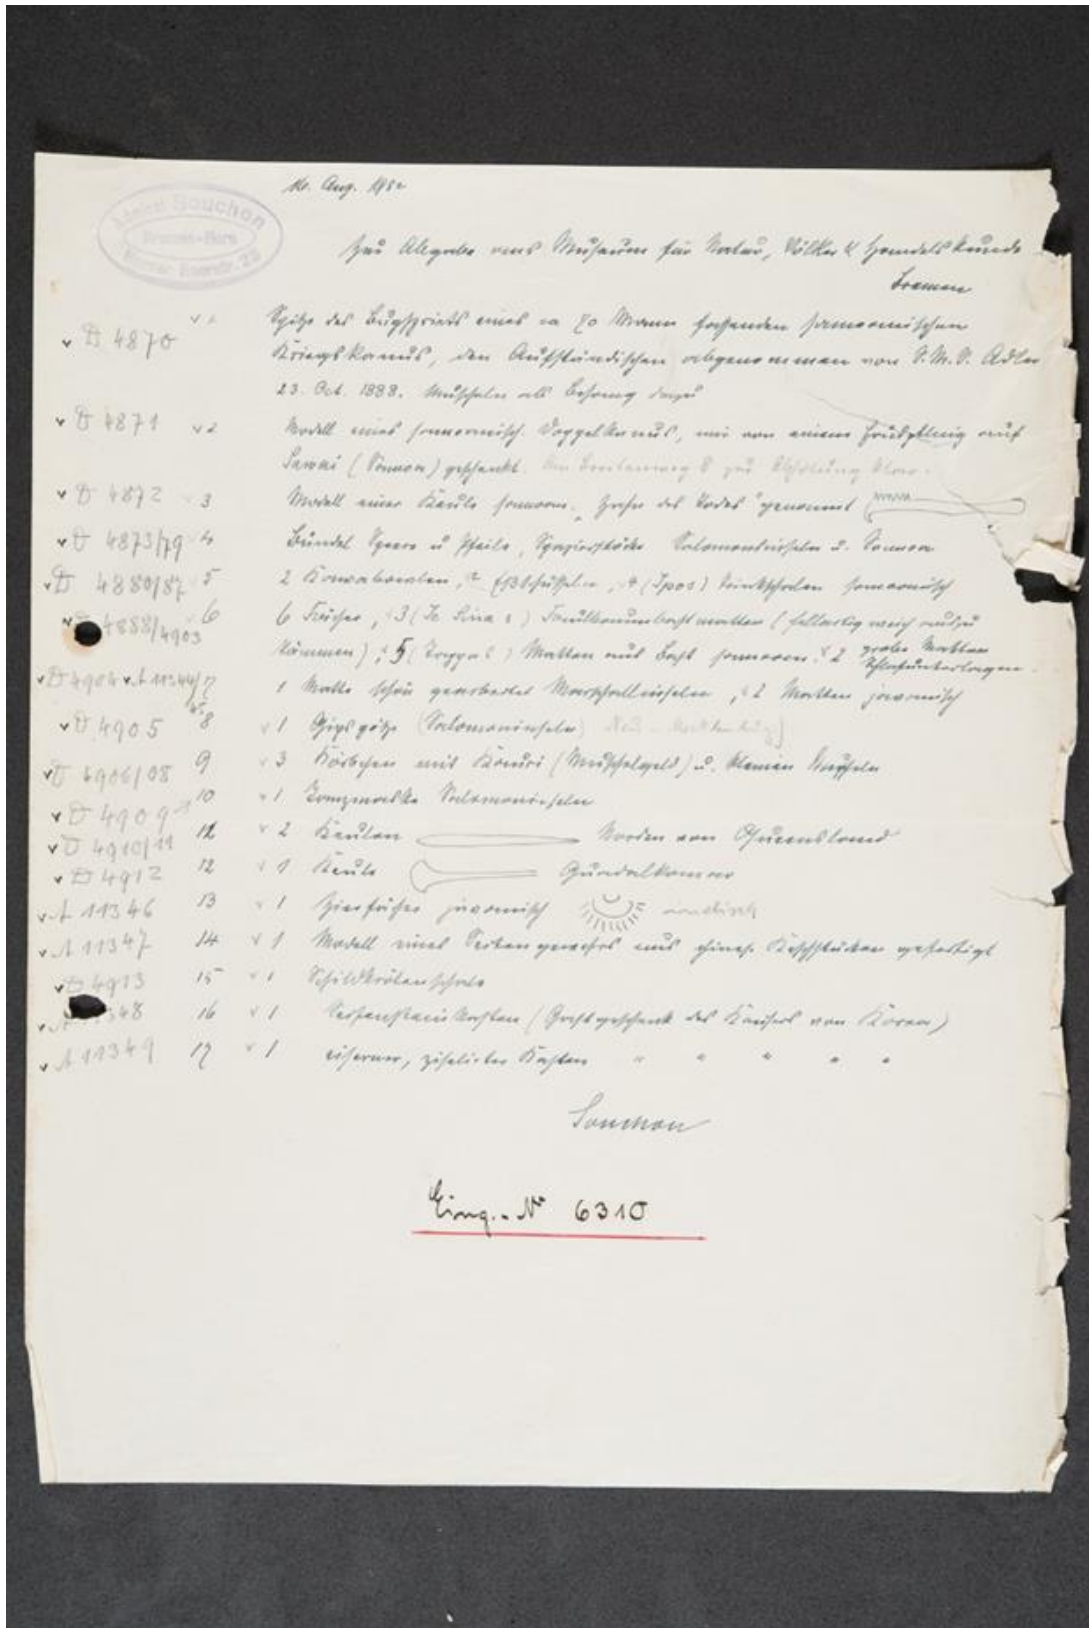 16. Aug. 19
Admiral Souchon
Bremen-Horn
Zur Abgabe ans Museum für Natur, Völker & Handelskunde
Bremen
D 4870 Spitze des Bugspriets eines ca 70 Mann fassenden samoanischen
Kriegskanus, den Aufständischen abgenommen von S.M.S. Adler
23. Oct. 1888. Muscheln als Behang dazu
D 4871 2 Modell eines samoanisch. Doppelkanus, mir von einem Häuptling auf
Sawai (Samoa) geschenkt.
D 4872 3 Modell einer Keule samoan. "Zahn des Todes" genannt
D 4873/79 4 Bündel Speere u Pfeile, Spazierstöcke Salomoninseln u. Samoa
D 4880/87 5 2 Kawabowlen, 2 Eßschüsseln, 4 (Ipos) Trinkschalen samoanisch
4888/4903 6 6 Fächer, 3 (Je Sina) (fellartig weich
kämmen), 5 (Tappas) Matten aus Bast samoan. 2 grobe Matten
Schlafunterlagen
D 4904 A 11344/45 7 1 Matte schön gearbeitet Marschallinseln, 2 Matten javanisch
D 4905 8 1 Gipsgötze (Salomoninseln) Neu-Mecklenburg
D 4906/08 9 3 Körbchen mit Kauri (Muschelgeld) u. kleinen Muscheln
D 4909 10 1 Tanzmaske Salomoninseln
D 4910/11 11 2 Keulen Norden von Queensland
D 4912 12 1 Keule Guadalkanar
A 11346 13 1 Zierfächer javanisch indisch
A 11347 14 1 Modell eines aus chines. Käschstücken gefertigt
D 4913 15 1 Schildkrötenschale
48 16 1 Seifensteinkasten (Gastgeschenk des Kaisers von Korea)
A 11349 17 1 eiserner, ziselierter Kasten " " " " "
Souchon
Eing.-No 6310